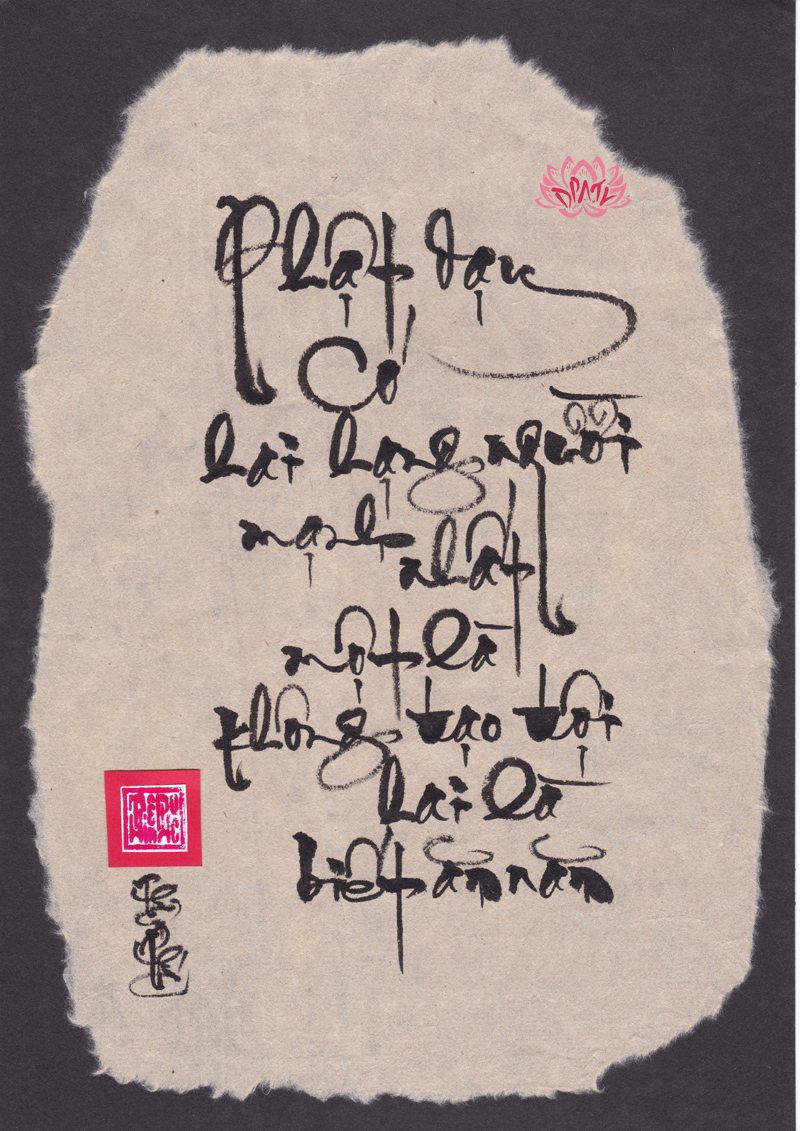 Phật dạy
Có
hai hạng người
mạnh nhất
một là
không tạo tội
hai là
biết ăn năn